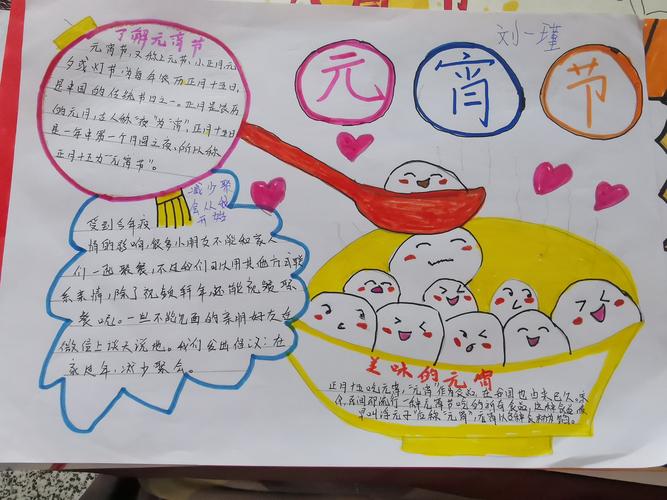 刘一瑾
元宵节
了解元宵节
元宵节,又称上元节、小正月、元
夕或灯节,为每年农历正月十五日,
是中国的传统节日之一。正月是农历
的元月,古人称“夜”为“宵”,正月十五日
是一年中第一个月圆之夜,所以称
正月十五为“元宵节”。
减少聚
会从我
开始
受到今年疫
情的影响,很多小朋友不能和家人
们一起聚餐,不过他们可以用其他方式联
系亲情,除了视频拜年,还能视频聚
餐呢。一些不能见面的亲朋好友在
微信上谈天说地。我们发出倡议:在
家过年,减少聚会。
美味的元宵
正月十五吃元宵,“元宵”作为食品,在我国也由来已久。宋
代,民间即流行一种元宵节吃的新奇食品,这种食品,最
早叫“浮元子”后称“元宵”,